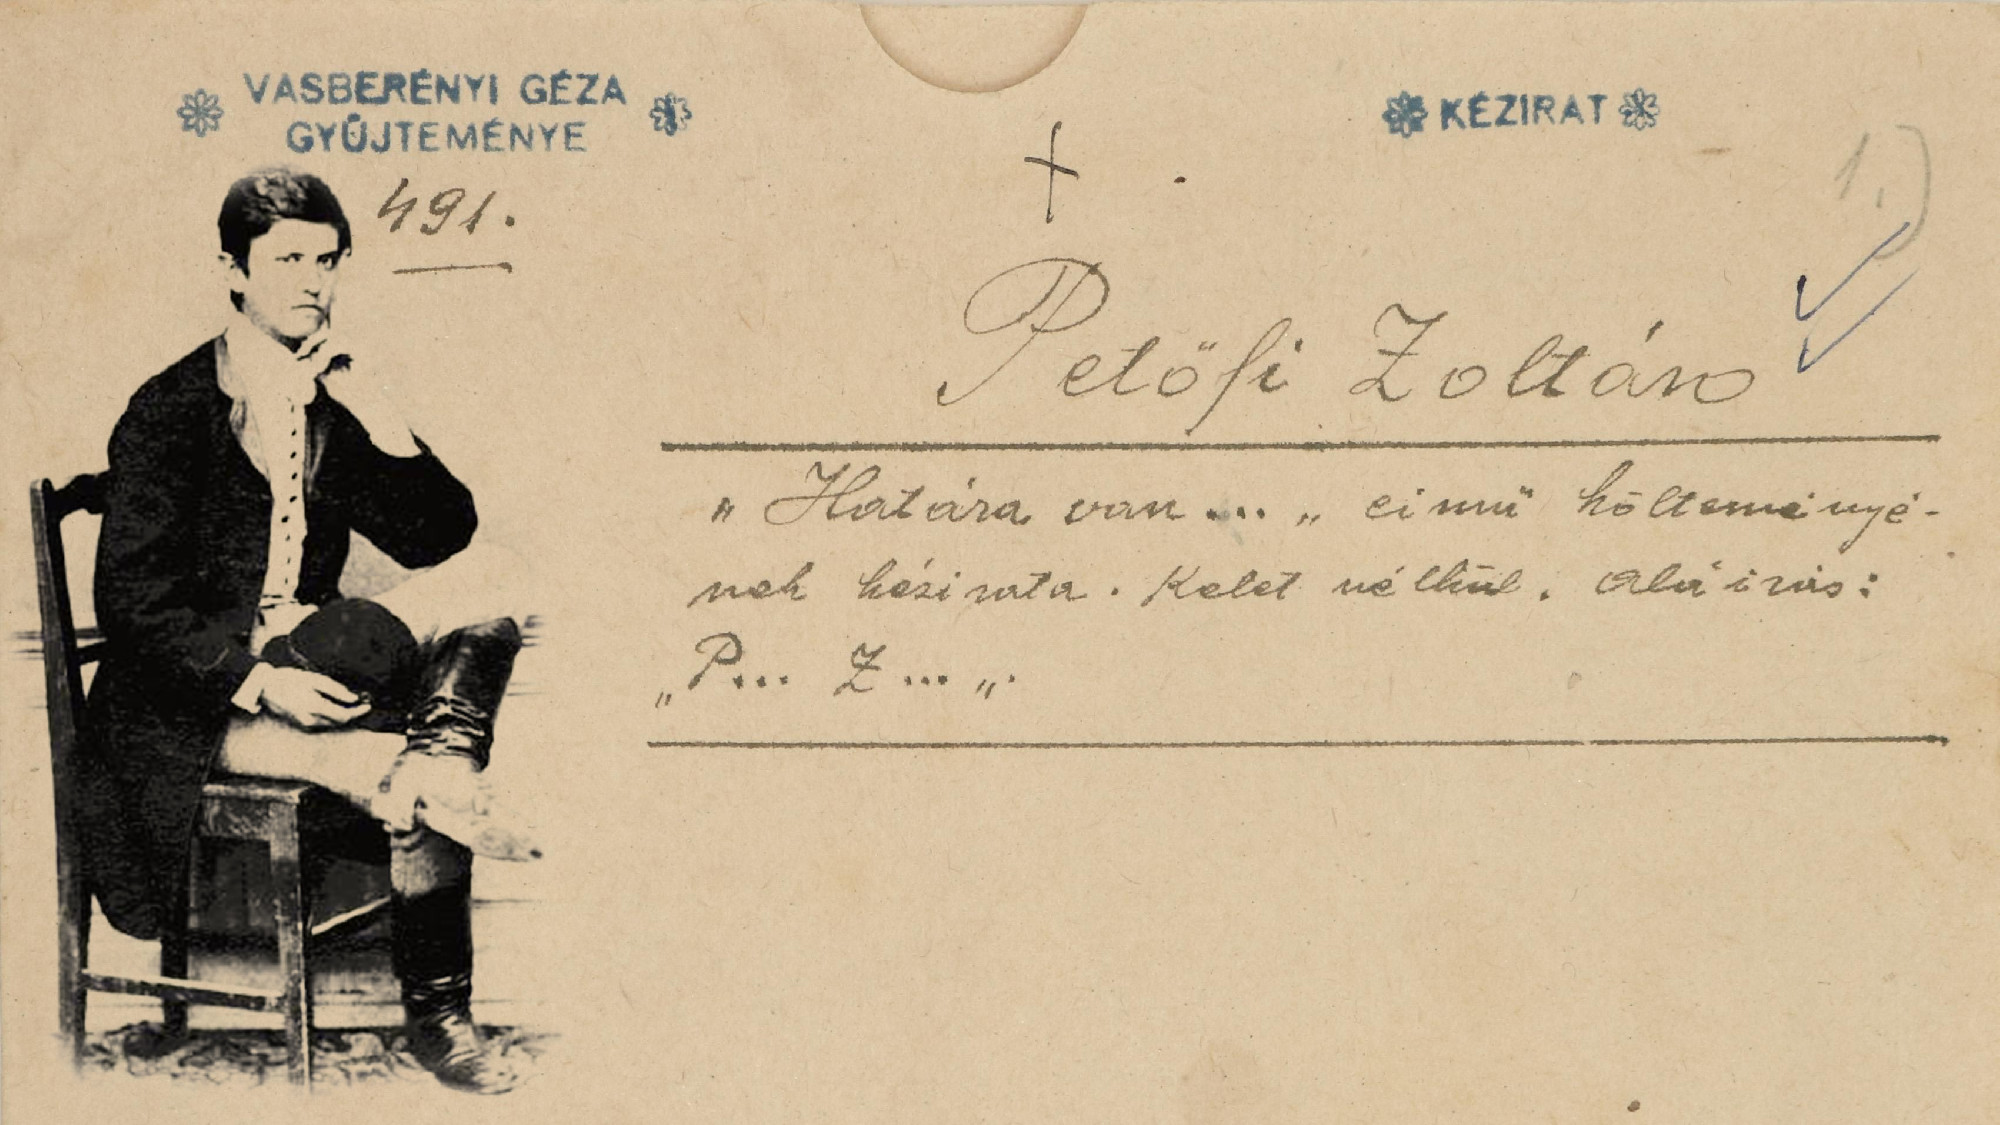 VASBERÉNYI GÉZA
GYŰJTEMÉNYE
KÉZIRAT
491.
+
1.)
Petőfi Zoltán
" Határa van ... „ cimü költeményé-
nek kézirata. Kelet nélkül. Aláirás:
„P... Z... „.